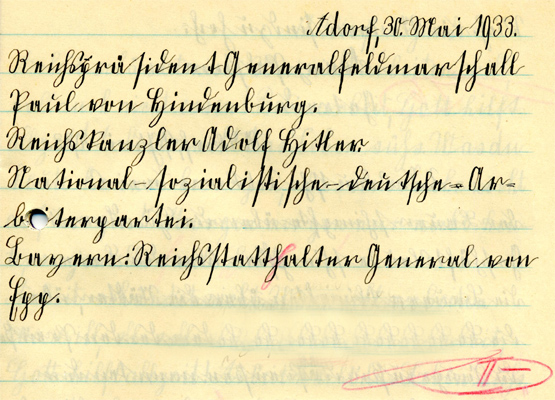 Adorf, 30. Mai 1933.
Reichspräsident Generalfeldmarschall
Paul von Hindenburg.
Reichskanzler Adolf Hitler
National-sozialistische-deutsche-Ar-
beiterpartei.
Bayern: Reichsstatthalter General von
Epp.
II-